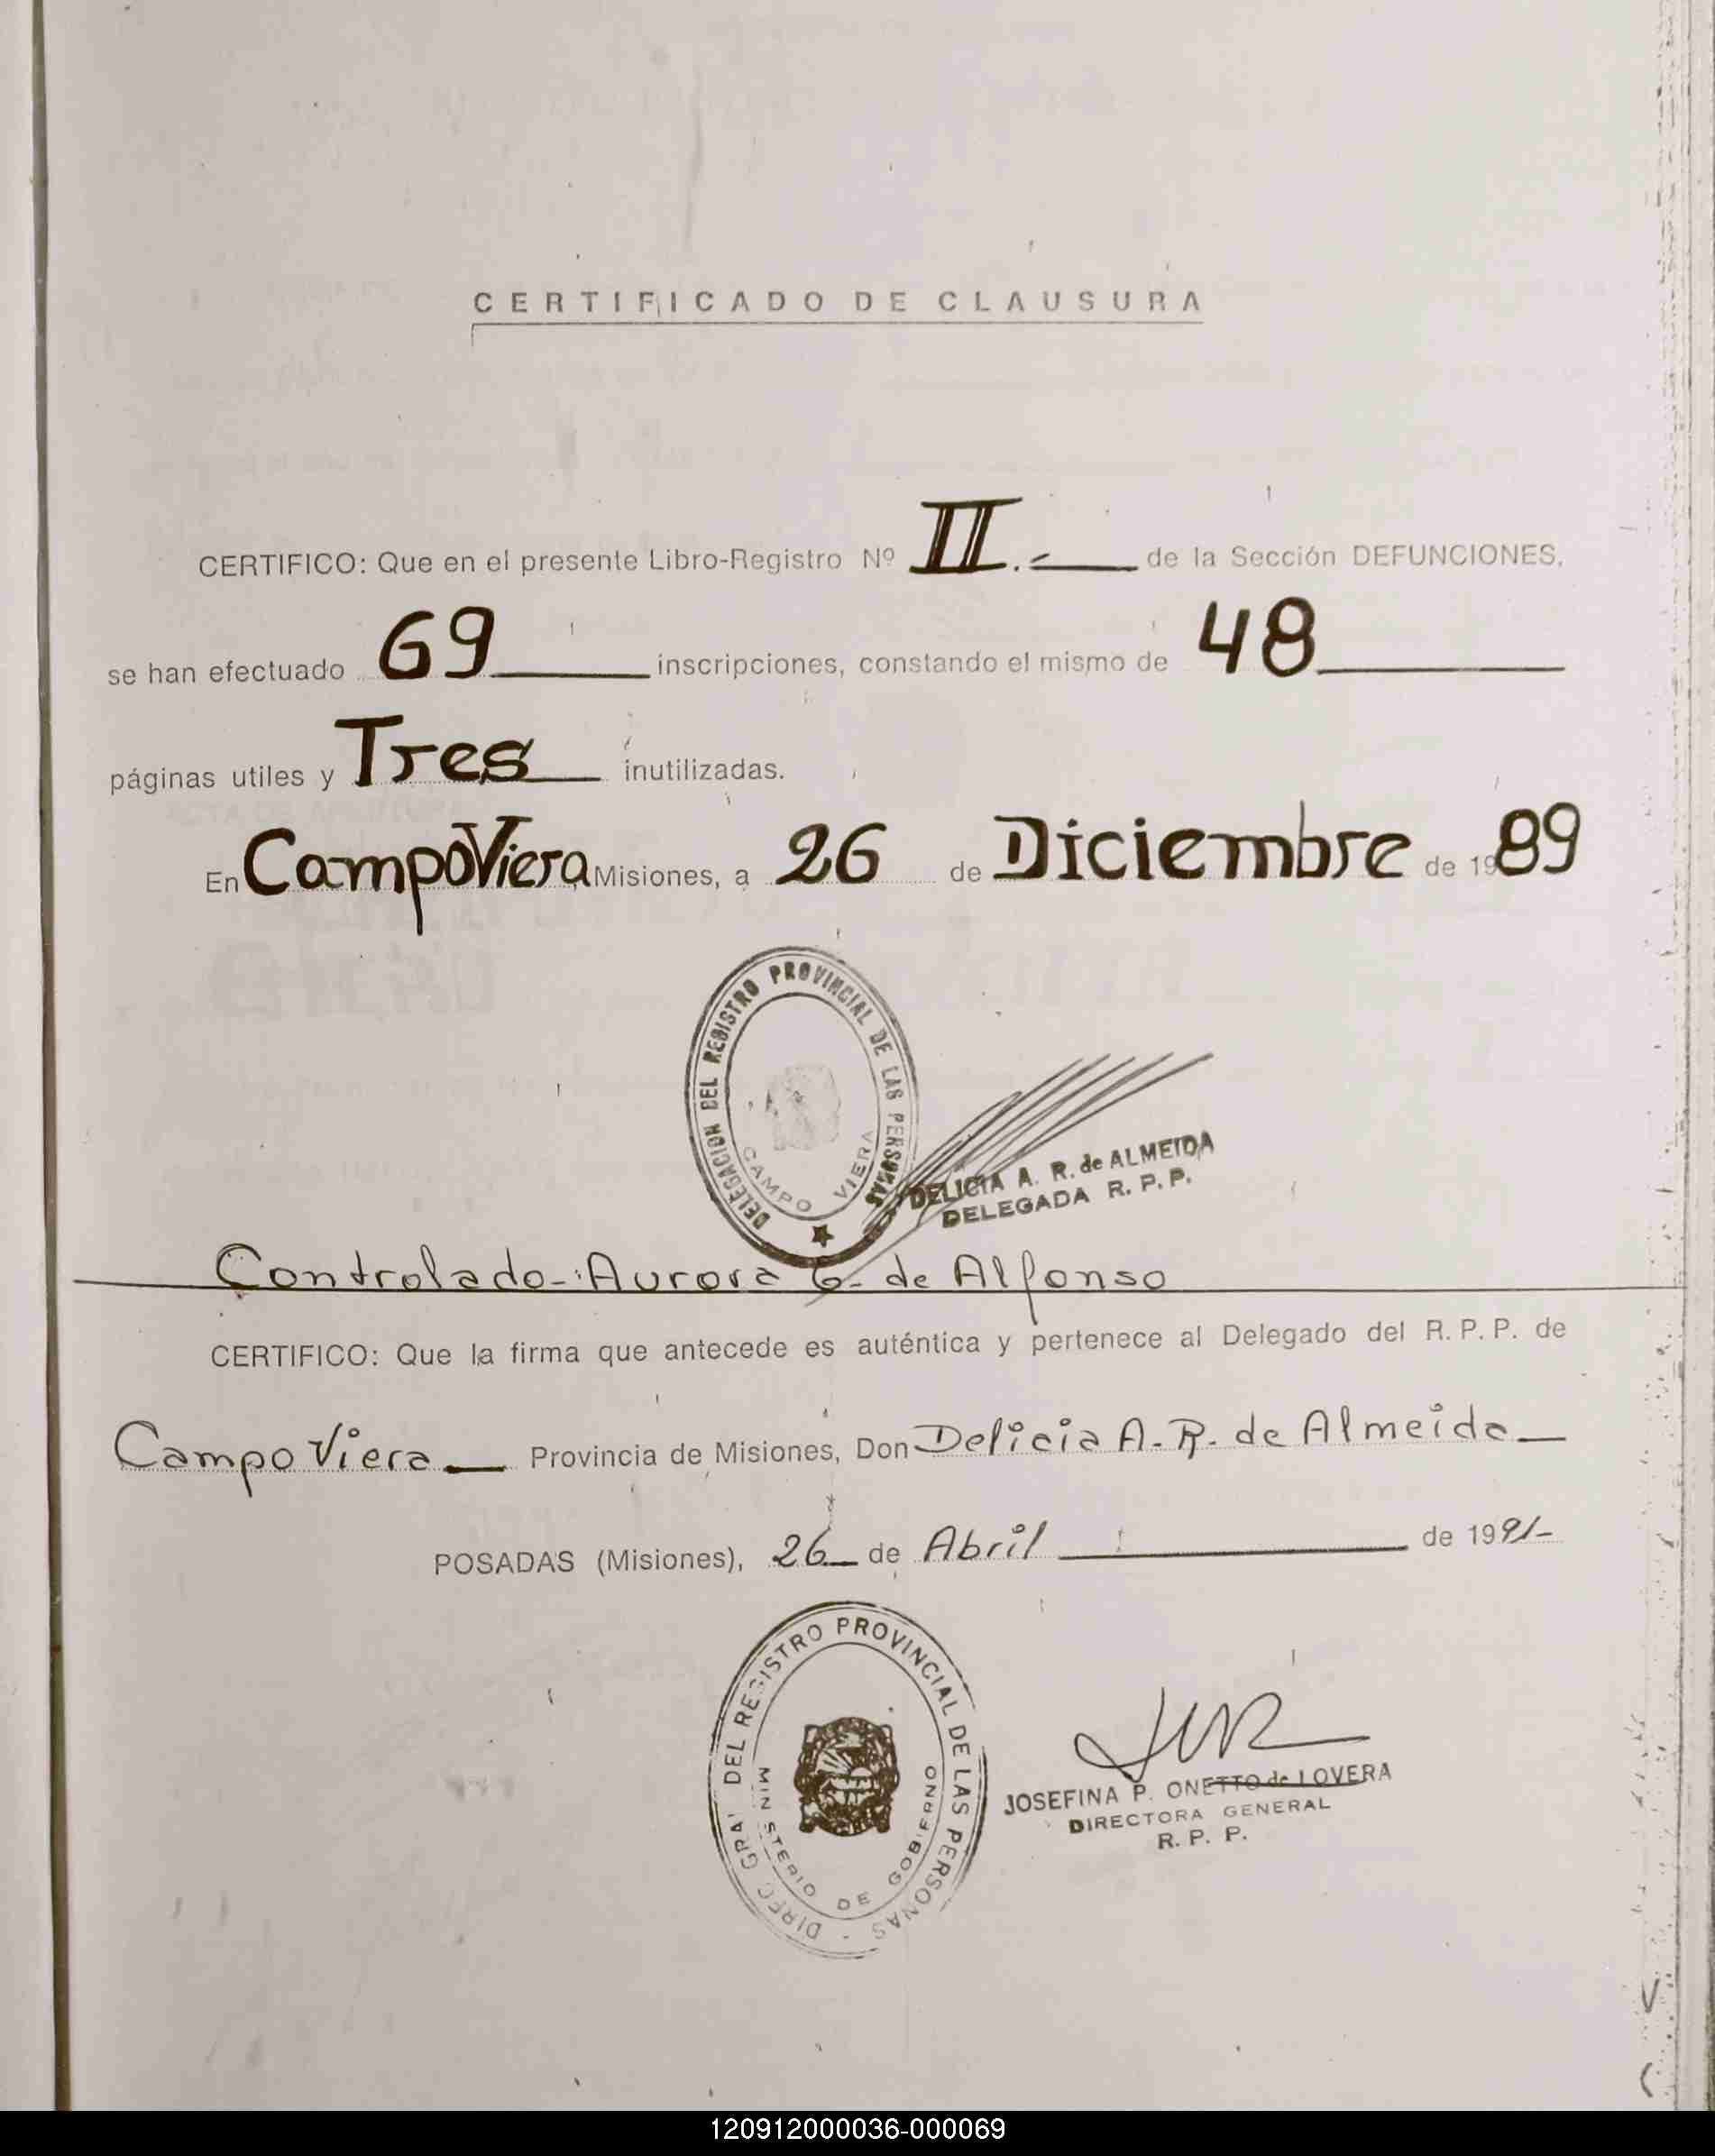 CERTIFICADO DE CLAUSURA
CERTIFICO: Que en el presente Libro-Registro Nº II.- de la Sección DEFUNCIONES,
se han efectuado 69 inscripciones, constando el mismo de 48
páginas utiles y Tres inutilizadas.
En Campo Viera Misiones, a 26 de Diciembre de 1989
DELEGACION DEL REGISTRO PROVINCIAL DE LAS PERSONAS
CAMPO VIERA
DELICIA A. R. de ALMEIDA
DELEGADA R. P. P.
Controlado-: Aurora G- de Alfonso
CERTIFICO: Que la firma que antecede es auténtica y pertenece al Delegado del R. P. P. de
Campo Viera Provincia de Misiones, Don Delicia A- R- de Almeida
POSADAS (Misiones), 26 de Abril de 1991-
DIREC GRAL DEL REGISTRO PROVINCIAL DE LAS PERSONAS -
MINISTERIO DE GOBIERNO
JOSEFINA P. ONETTO de LOVERA
DIRECTORA GENERAL
R. P. P.
120912000036-000069